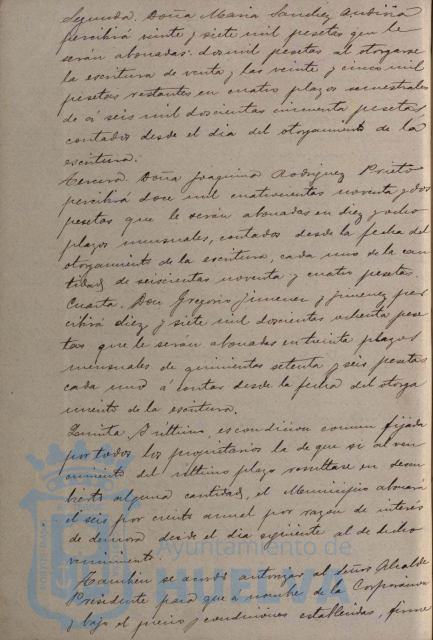 Segunda. Doña Maria Sanchez
percibirá veinte y siete mil pesetas que le
serán abonadas: dos mil pesetas al otorgarse
la escritura de venta y las veinte y cinco mil
pesetas restantes en cuatro plazos semestrales
de á seis mil doscientas cincuenta pesetas
contados desde el dia del otorgamiento de la
escritura.
Tercera. Doña Joaquina Rodriguez Prieto
percibirá doce mil cuatrocientas noventa y dos
pesetas que le serán abonadas en diez y ocho
plazos mensuales, contados desde la fecha del
otorgamiento de la escritura, cada uno de la can
tidad de seiscientas noventa y cuatro pesetas.
Cuarta. Don Gregorio Jimenez y Jimenez per
cibirá diez y siete mil doscientas ochenta pese
tas que le serán abonadas en treinta plazos
mensuales de quinientas setenta y seis pesetas
cada uno á contar desde la fecha del otorga
miento de la escritura.
Quinta y última, es condicion comun fijada
por todos los propietarios la de que si al ven
cimiento del último plazo resultase en descu
bierto alguna cantidad, el Municipio abonará
el seis por ciento anual por razon de interés
de demora desde el dia siguiente al de dicho
vencimiento.
Tambien se acordó autorizar al Señor Alcalde
Presidente para que á nombre de la Corporacion
y bajo el precio y condiciones establecidas, firme
Ayuntamiento de
HUELVA